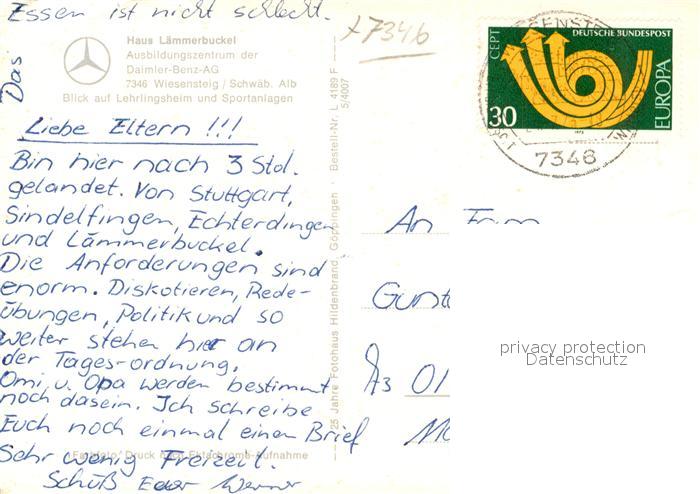 Essen ist nicht schlecht.
Das
Haus Lämmerbuckel
Ausbildungszentrum der
Daimler-Benz-AG
7346 Wiesensteig / Schwäb. Alb
Blick auf Lehrlingsheim und Sportanlagen
Liebe Eltern !!!
Bin hier nach 3 Std.
gelandet. Von Stuttgart,
Sindelfingen, Echterdingen
und Lämmerbuckel.
Die Anforderungen sind
enorm. Diskotieren, Rede-
übungen, Politik und so
weiter stehen hier an
der Tages-ordnung.
Omi u. Opa werden bestimmt
noch dasein. Ich schreibe
Euch noch einmal einen Brief
Sehr wenig Freizeit.
Schüß Euer Werner
Druck nach Ektachrome-Aufnahme
25 Jahre Fotohaus Hildenbrand, Göppingen
Bestell-Nr. L 4189 F
5/4007
x7346
CEPT
DEUTSCHE BUNDESPOST
30
EUROPA
7346
An
A3 01
privacy protection
Datenschutz